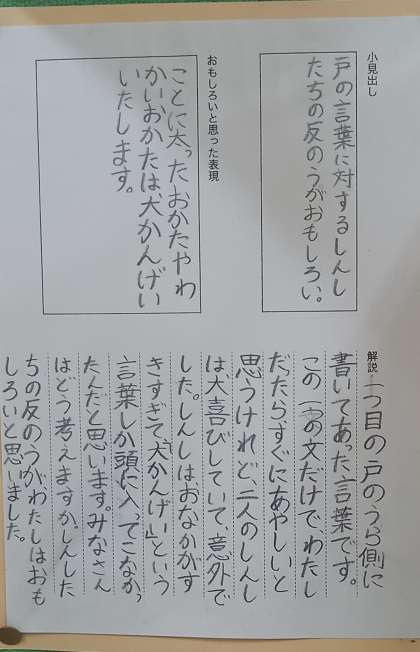 小見出し
戸の言葉に対するしんし
たちの反のうがおもしろい。
おもしろいと思った表現
ことに太ったおかたやわ
かいおかたは、大かんげい
いたします。
解説
一つ目の戸のうら側に
書いてあった言葉です。
この一つの文だけで、わたし
だったらすぐにあやしいと
思うけれど、二人のしんし
は、大喜びしていて、意外で
した。しんしは、おなかがす
きすぎて、「大かんげい」という
言葉しか頭に入ってこなかっ
たんだと思います。みなさん
はどう考えますか。しんした
ちの反のうがわたしはおも
しろいと思いました。